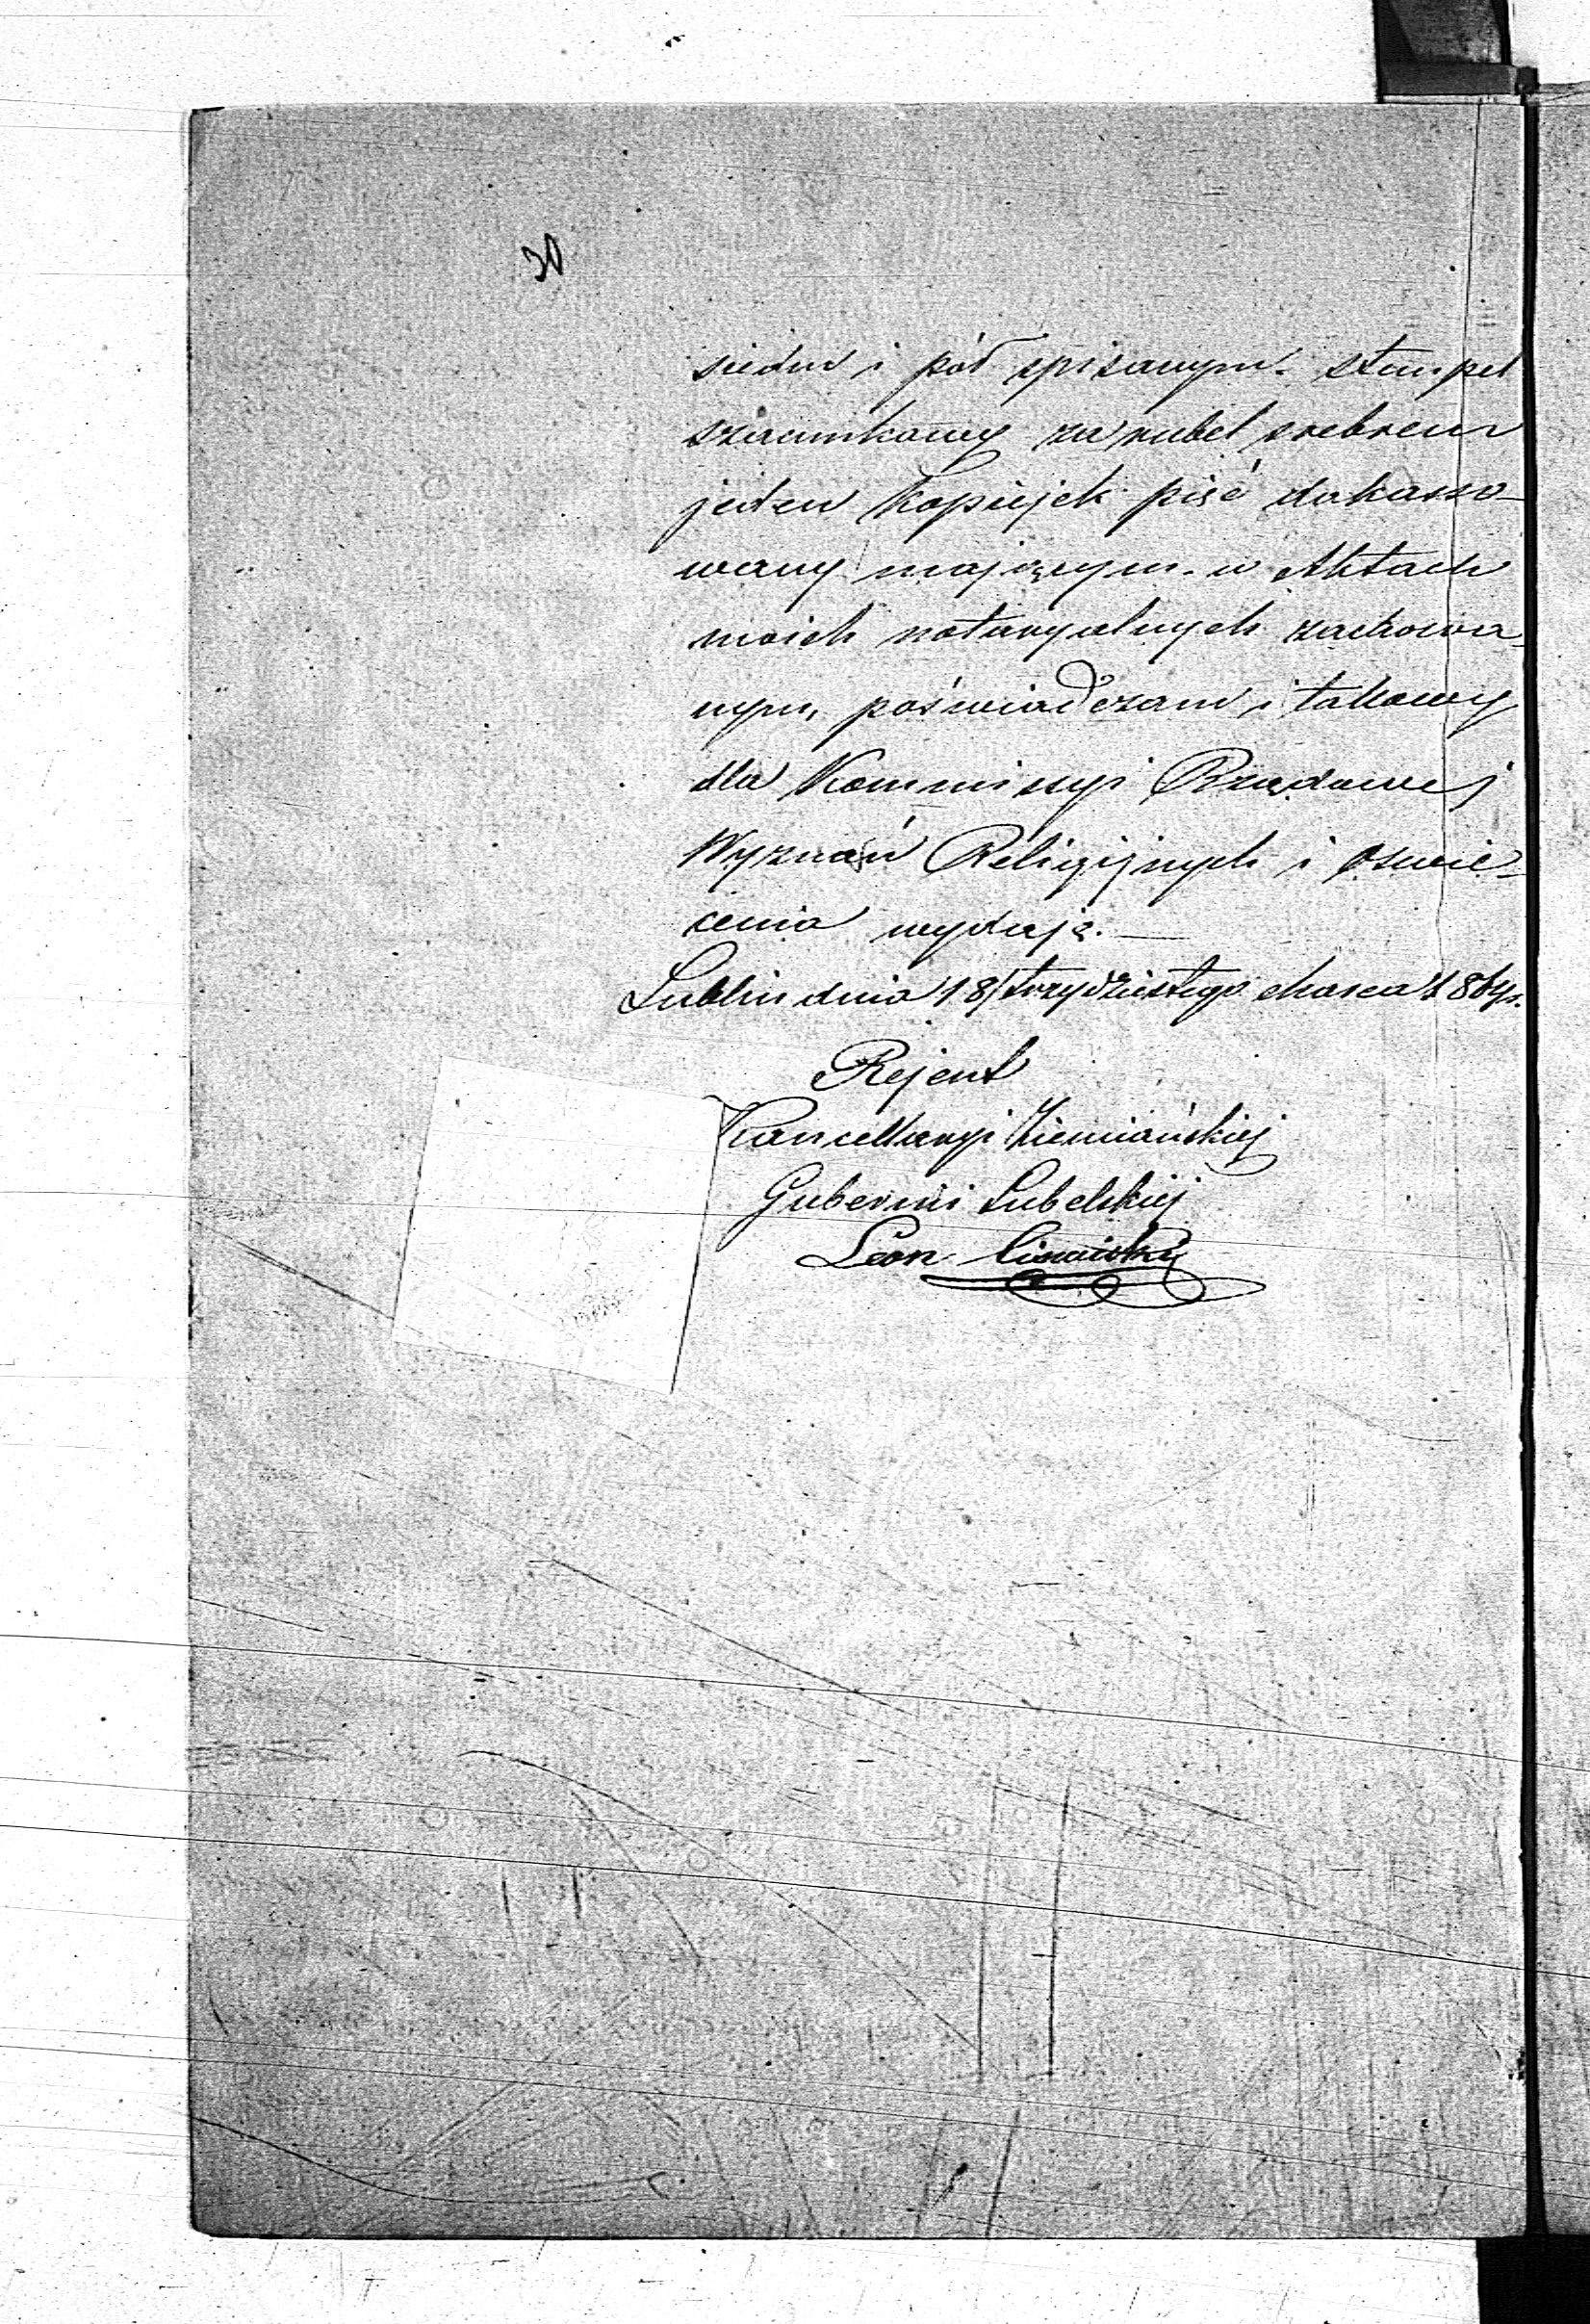 30
siedm i pół spisanym. stempel
szacunkowy za rubel srebrem
jeden kopiejek pięć dokasso-
wany mającym. w Aktach
moich notaryalnych zachowa-
nym, poświadczam i takowy
dla Kommissyi Rządowej
Wyznań Religijnych i Oświe-
cenia wydaję.
Lublin dnia 18/trzydziestego Marca 1864 r.
Rejent
Kancellaryi Ziemiańskiej
Gubernii Lubelskiej
Leon